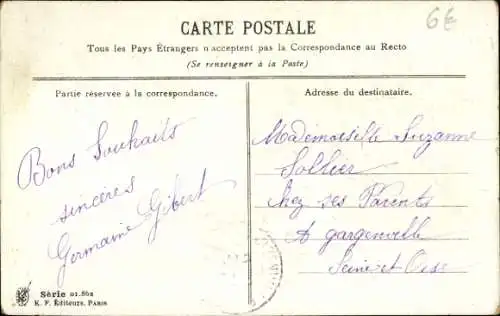 6€
CARTE POSTALE
Tous les Pays Étrangers n'acceptent pas la Correspondance au Recto
(Se renseigner à la Poste)
Partie réservée à la correspondance.
Adresse du destinataire.
Bons Souhaits
sincères
Germaine Gibert
Mademoiselle Suzanne
Sollier
Chez ses Parents
A gargenville
Seine et Oise
Série 01.862
K. F. Éditeurs, PARIS